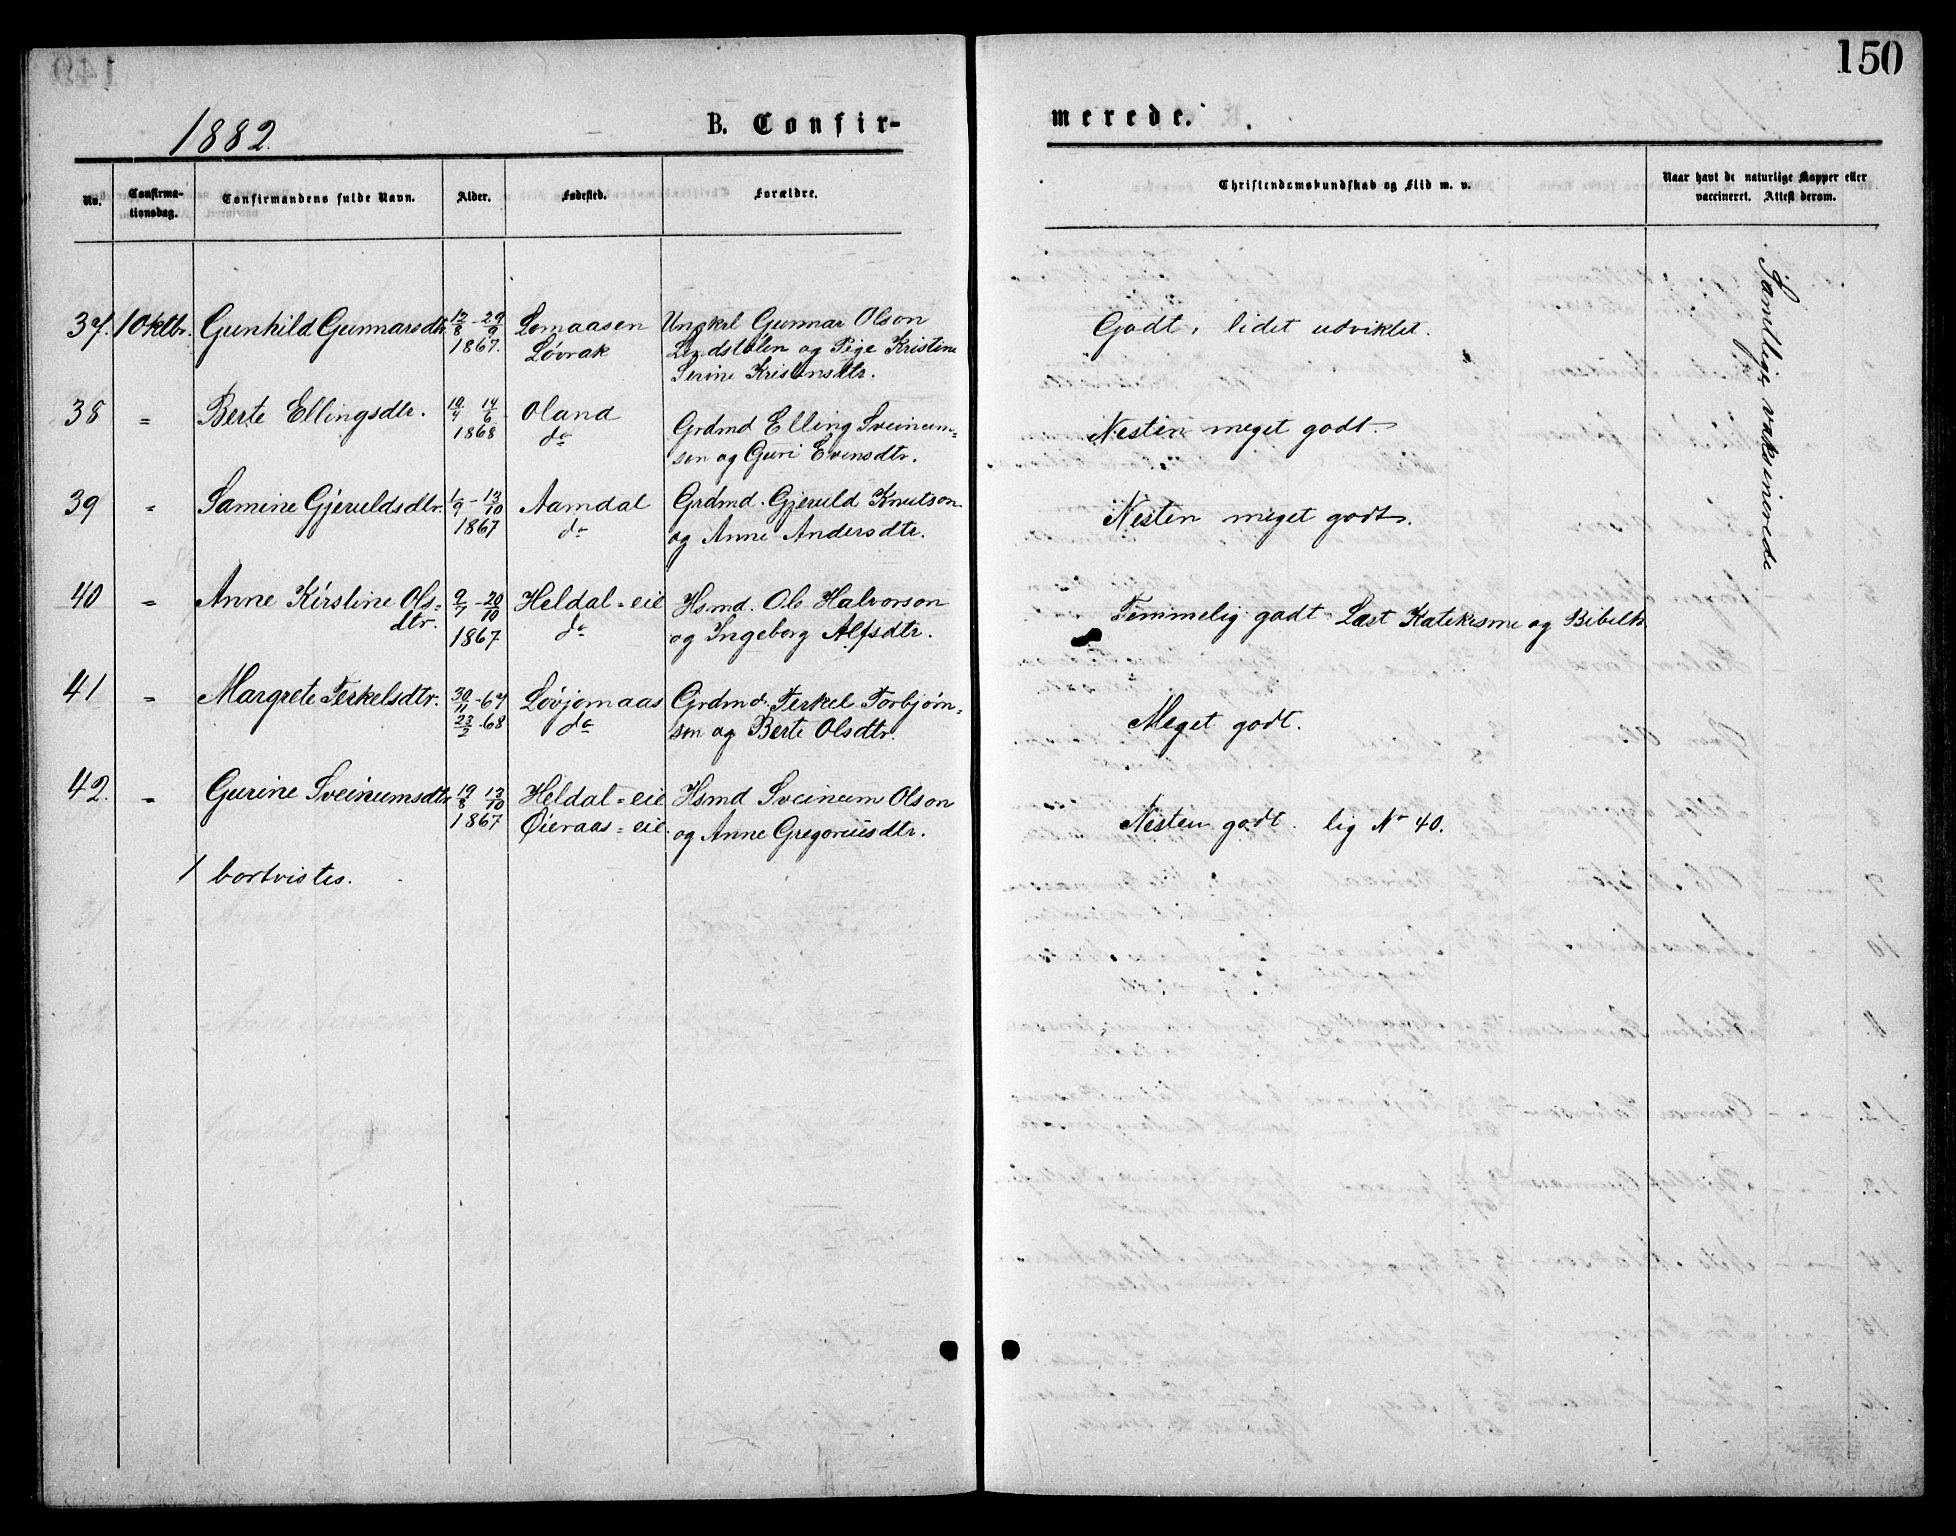 150
1882.
B. Confir-
merede.
No.
Confirma-
tionsdag.
Confirmandens fulde Navn.
Alder.
Fødested.
Forældre.
Christendomskundskab og Flid m. v.
Naar havt de naturlige Kopper eller
vaccineret. Attest derom.
37. 1 Oktbr. Gunhild Gunnarsdtr. 12/8 - 29/9 Lomaasen Ungkrl Gunnar Olson Godt, lidet udviklet.
1867. Løvrak Lindstølen og Pige Kristine
Serine Kristensdtr.
38 " Berte Ellingsdtr. 10/4 14/6 Oland Grdmd Elling Sveinum- Nesten meget godt.
1868 do son og Guri Evensdtr.
39 " Samine Gjeruldsdtr. 1/9 - 13/10 Aamdal Grdmd. Gjeruld Knutson Nesten meget godt.
1867 do og Anne Andersdtr.
40 " Anne Kirstine Ols= 9/7 - 20/10 Heldal = eie Hsmd. Ole Halvorson Temmelig godt Læst Katekisme og Bibelh
dtr. 1867 do og Ingeborg Alfsdtr.
41 " Margrete Terkelsdtr. 30/11 - 67 Løvjomaas Grdmd. Terkel Torbjørn= Meget godt.
23/2 - 68 do son og Berte Olsdtr.
42. " Gurine Sveinumsdtr 19/8 13/10 Heldal = eie Hsmd Sveinum Olson Nesten godt. lig No 40.
1867 Øieraas = eie. og Anne Gregoriusdtr.
1 bortvistes.
Samtlige vaksinerede